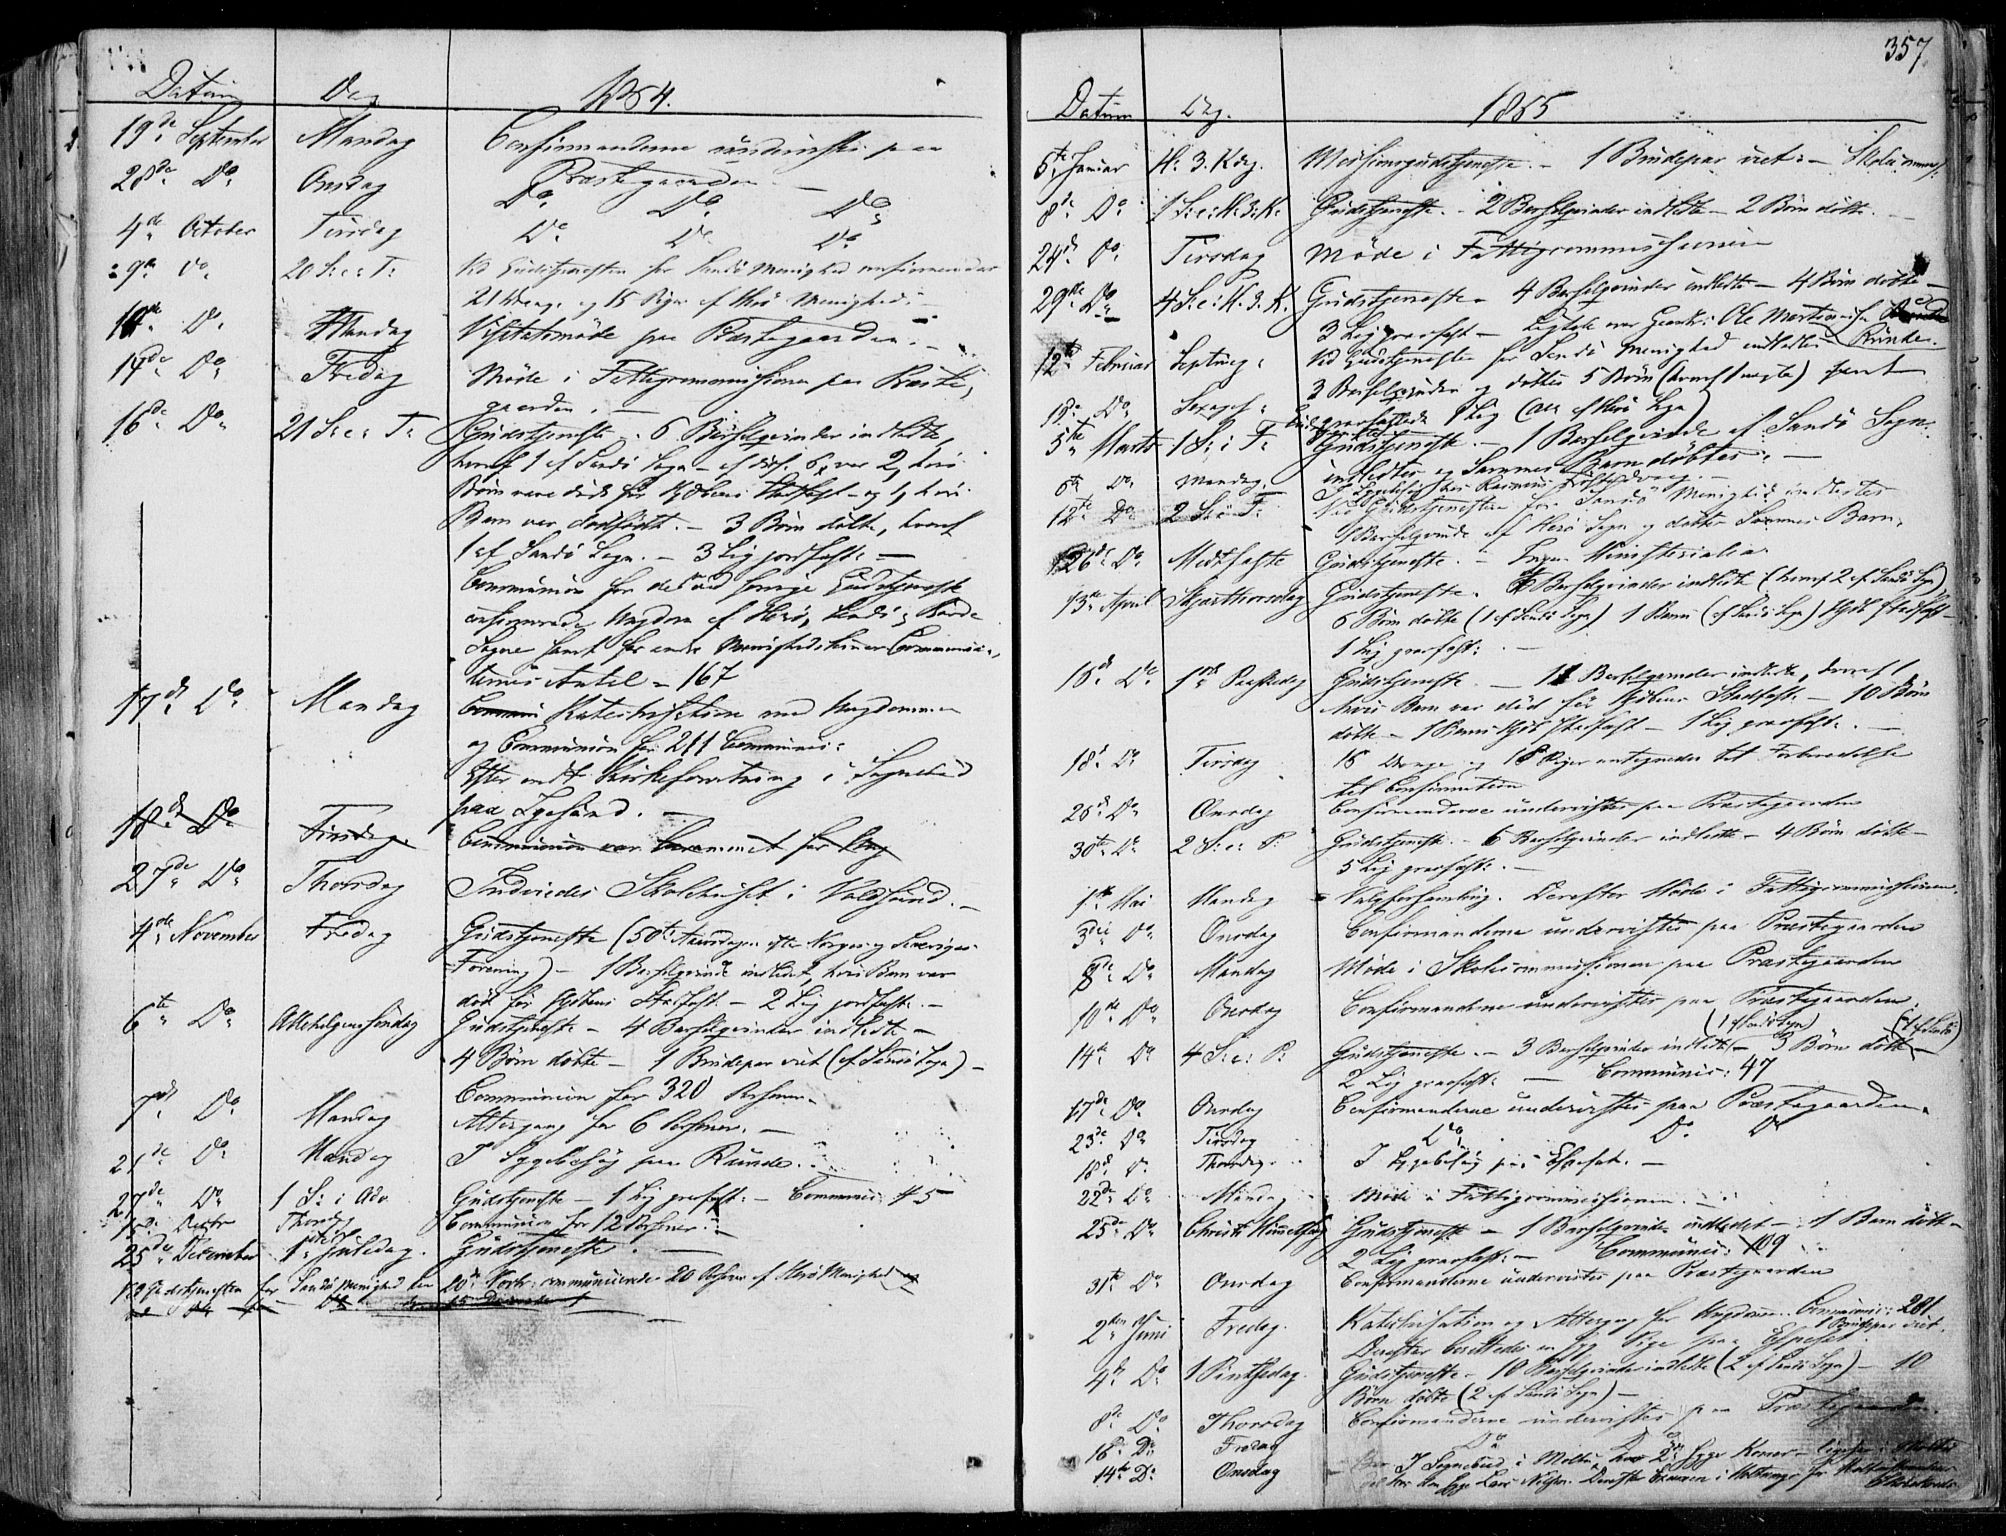 Datum Dag 1864.
19de September Mandag Confirmanderne undervistes paa
Præstegaarden. —
28de Do Onsdag Do Do Do
4de October Tirsdag Do Do Do
9de Do 20 S. e. T. Ved Gudstjenesten for Sandö Menighed confirmeredes
21 Drenge og 15 Piger af Herö Menighed. —
10de Do Mandag Visitatsmöde paa Præstegaarden. —
14de Do Fredag Möde i Fattigcommissionen paa Præste-
gaarden. —
16de Do 21 S. e. T. Gudstjeneste. 6 Barselqvinder indledte,
hvoraf 1 af Sandö Sogn — af disse 6, var 2, hvis
Börn vare döde för Daabens Stadfæst. — og 1, hvis
Barn var dödfödt. — 3 Börn döbte, hvoraf
1 af Sandö Sogn. — 3 Lig jordfæst. —
Communion for de ved forrige Gudstjeneste
confirmerede Ungdom af Herö, Sandö
Sogne samt for andre Menighedslemmer. Communican-
ternes Antal = 167
17de Do Mandag Katechisation med Ungdommen
og Communion for 211 Communic.
Efter endt Kirkeforretning i Sognebud
paa Igesund. —
18de Do Tirsdag. Communion var berammet for Dag
27de Do Thorsdag Indviedes Skolehuset i Voldsund. —
4de November Fredag Gudstjeneste (50de Aarsdagen efter Norges og Sveriges
Forening) — 1 Barselqvinde indledt, hvis Barn var
död för Daabens Stadfæst. — 2 Lig jordfæst. —
6te Do Allehelgenssöndag Gudstjeneste — 4 Barselqvinder indledte —
4 Börn döbte — 1 Brudepar viet (af Sandö Sogn) —
Communion for 320 Personer.
7de Do Mandag Altergang for 6 Personer. —
21de Do Mandag I Sygebesög paa Runde. —
27de Do 1 S. i Adv. Gudstjeneste — 1 Lig grafæst. — Communic. 45
Thorsdag Communion for 12 Personer. —
25de December 1ste Juledag. Gudstjeneste. —
Ved Gudstjenesten for Sandö Menighed den 20de Novbr. communicerede 20 Personer af Herö Menighed
357
Datum Dag. 1865
5te Januar H. 3. K. dag. Missionsgudstjeneste. — 1 Brudepar viet. —
8de Do 1 S. e. H. 3. K. Gudstjeneste. — 2 Barselqvinder indledte — 2 Börn döbte. —
24de Do Tirsdag Möde i Fattigcommissionen
29de Do 4 S. e. H. 3. K. Gudstjeneste — 4 Barselqvinder indledte — 4 Börn döbte —
3 Lig grafæst — Ligtale over Ole Martinusen Runde.
12te Februar Septuag. Ved Gudstjenesten for Sandö Menighed indledtes
3 Barselqvinder og döbtes 5 Börn (hvoraf 1 uægte) samt
19de Do Sexages. grafæstedes 1 Lig (alle af Herö Sogn)
5te Marts 1 S. i F. Gudstjeneste. — 1 Barselqvinde af Sandö Sogn
indledtes og Sammes Barn döbtes. —
6te Do Mandag. I Sygebesög hos Rasmus
12te Do 2 S. i F. Ved Gudstjenesten for Sandö Menighed indledtes
1 Barselqvinde af Herö Sogn og döbtes Sammes Barn.
26de Do Midfaste Gudstjeneste. — Ingen Ministerialia
13de April Skjærthorsdag Gudstjeneste. 6 Barselqvinder indledte (hvoraf 2 af Sandö Sogn)
6 Börn döbte (1 af Sandö Sogn) 1 Barns (af Sandö Sogn) Daab stadfæst —
1 Lig grafæst. —
16de Do 1ste Paaskedag Gudstjeneste — 11 Barselqvinder indledte, hvoraf 1
hvis Barn var död för Daabens Stadfæst. — 10 Börn
döbte — 1 Barns Daab stadfæst — 1 Lig grafæst. —
18de Do Tirsdag 16 Drenge og 18 Piger antegnedes til Forberedelse
til Confirmation
26de Do Onsdag Confirmanderne undervistes paa Præstegaarden
30te Do 2 S. e. P. Gudstjeneste. — 6 Barselqvinder indledte — 4 Börn döbte —
5 Lig grafæst. —
1ste Mai Mandag Valgforsamling. Derefter Möde i Fattigcommissionen.
3die Do Onsdag Confirmanderne undervistes paa Præstegaarden
8de Do Mandag Möde i Skolecommissionen paa Præstegaarden
10de Do Onsdag Confirmanderne undervistes paa Præstegaarden.
(1 af Sandö Sogn) (1 af Sandö)
14de Do 4 S. e. P. Gudstjeneste. — 3 Barselqvinder indledte — 3 Börn döbte —
2 Lig grafæst. — Communic. 47
17de Do Onsdag Confirmanderne undervistes paa Præstegaarden.
23de Do Tirsdag Do Do Do
18de Do Thorsdag. I Sygebesög paa Espeset. —
22de Do Mandag Möde i Fattigcommissionen. —
25de Do Christi Himmelfartsdag Gudstjeneste — 1 Barselqvinde indledet — 1 Barn döbt —
2 Lig grafæst. — Communic. 109
31te Do Onsdag Confirmanderne undervistes paa Præstegaarden
2den Juni Fredag. Katechisation og Altergang for Ungdommen. Communic. 281.
1 Brudepar viet.
Derefter berettedes en syg Pige paa Espeset
4de Do 1 Pintsedag. Gudstjeneste — 10 Barselqvinder indledte (2 af Sandö Sogn) — 10
Börn döbte (2 af Sandö Sogn) —
8de Do Thorsdag Confirmanderne undervistes paa Præstegaarden.
16de Do Fredag Do Do
14de Do Onsdag I Sognebud i Moltu